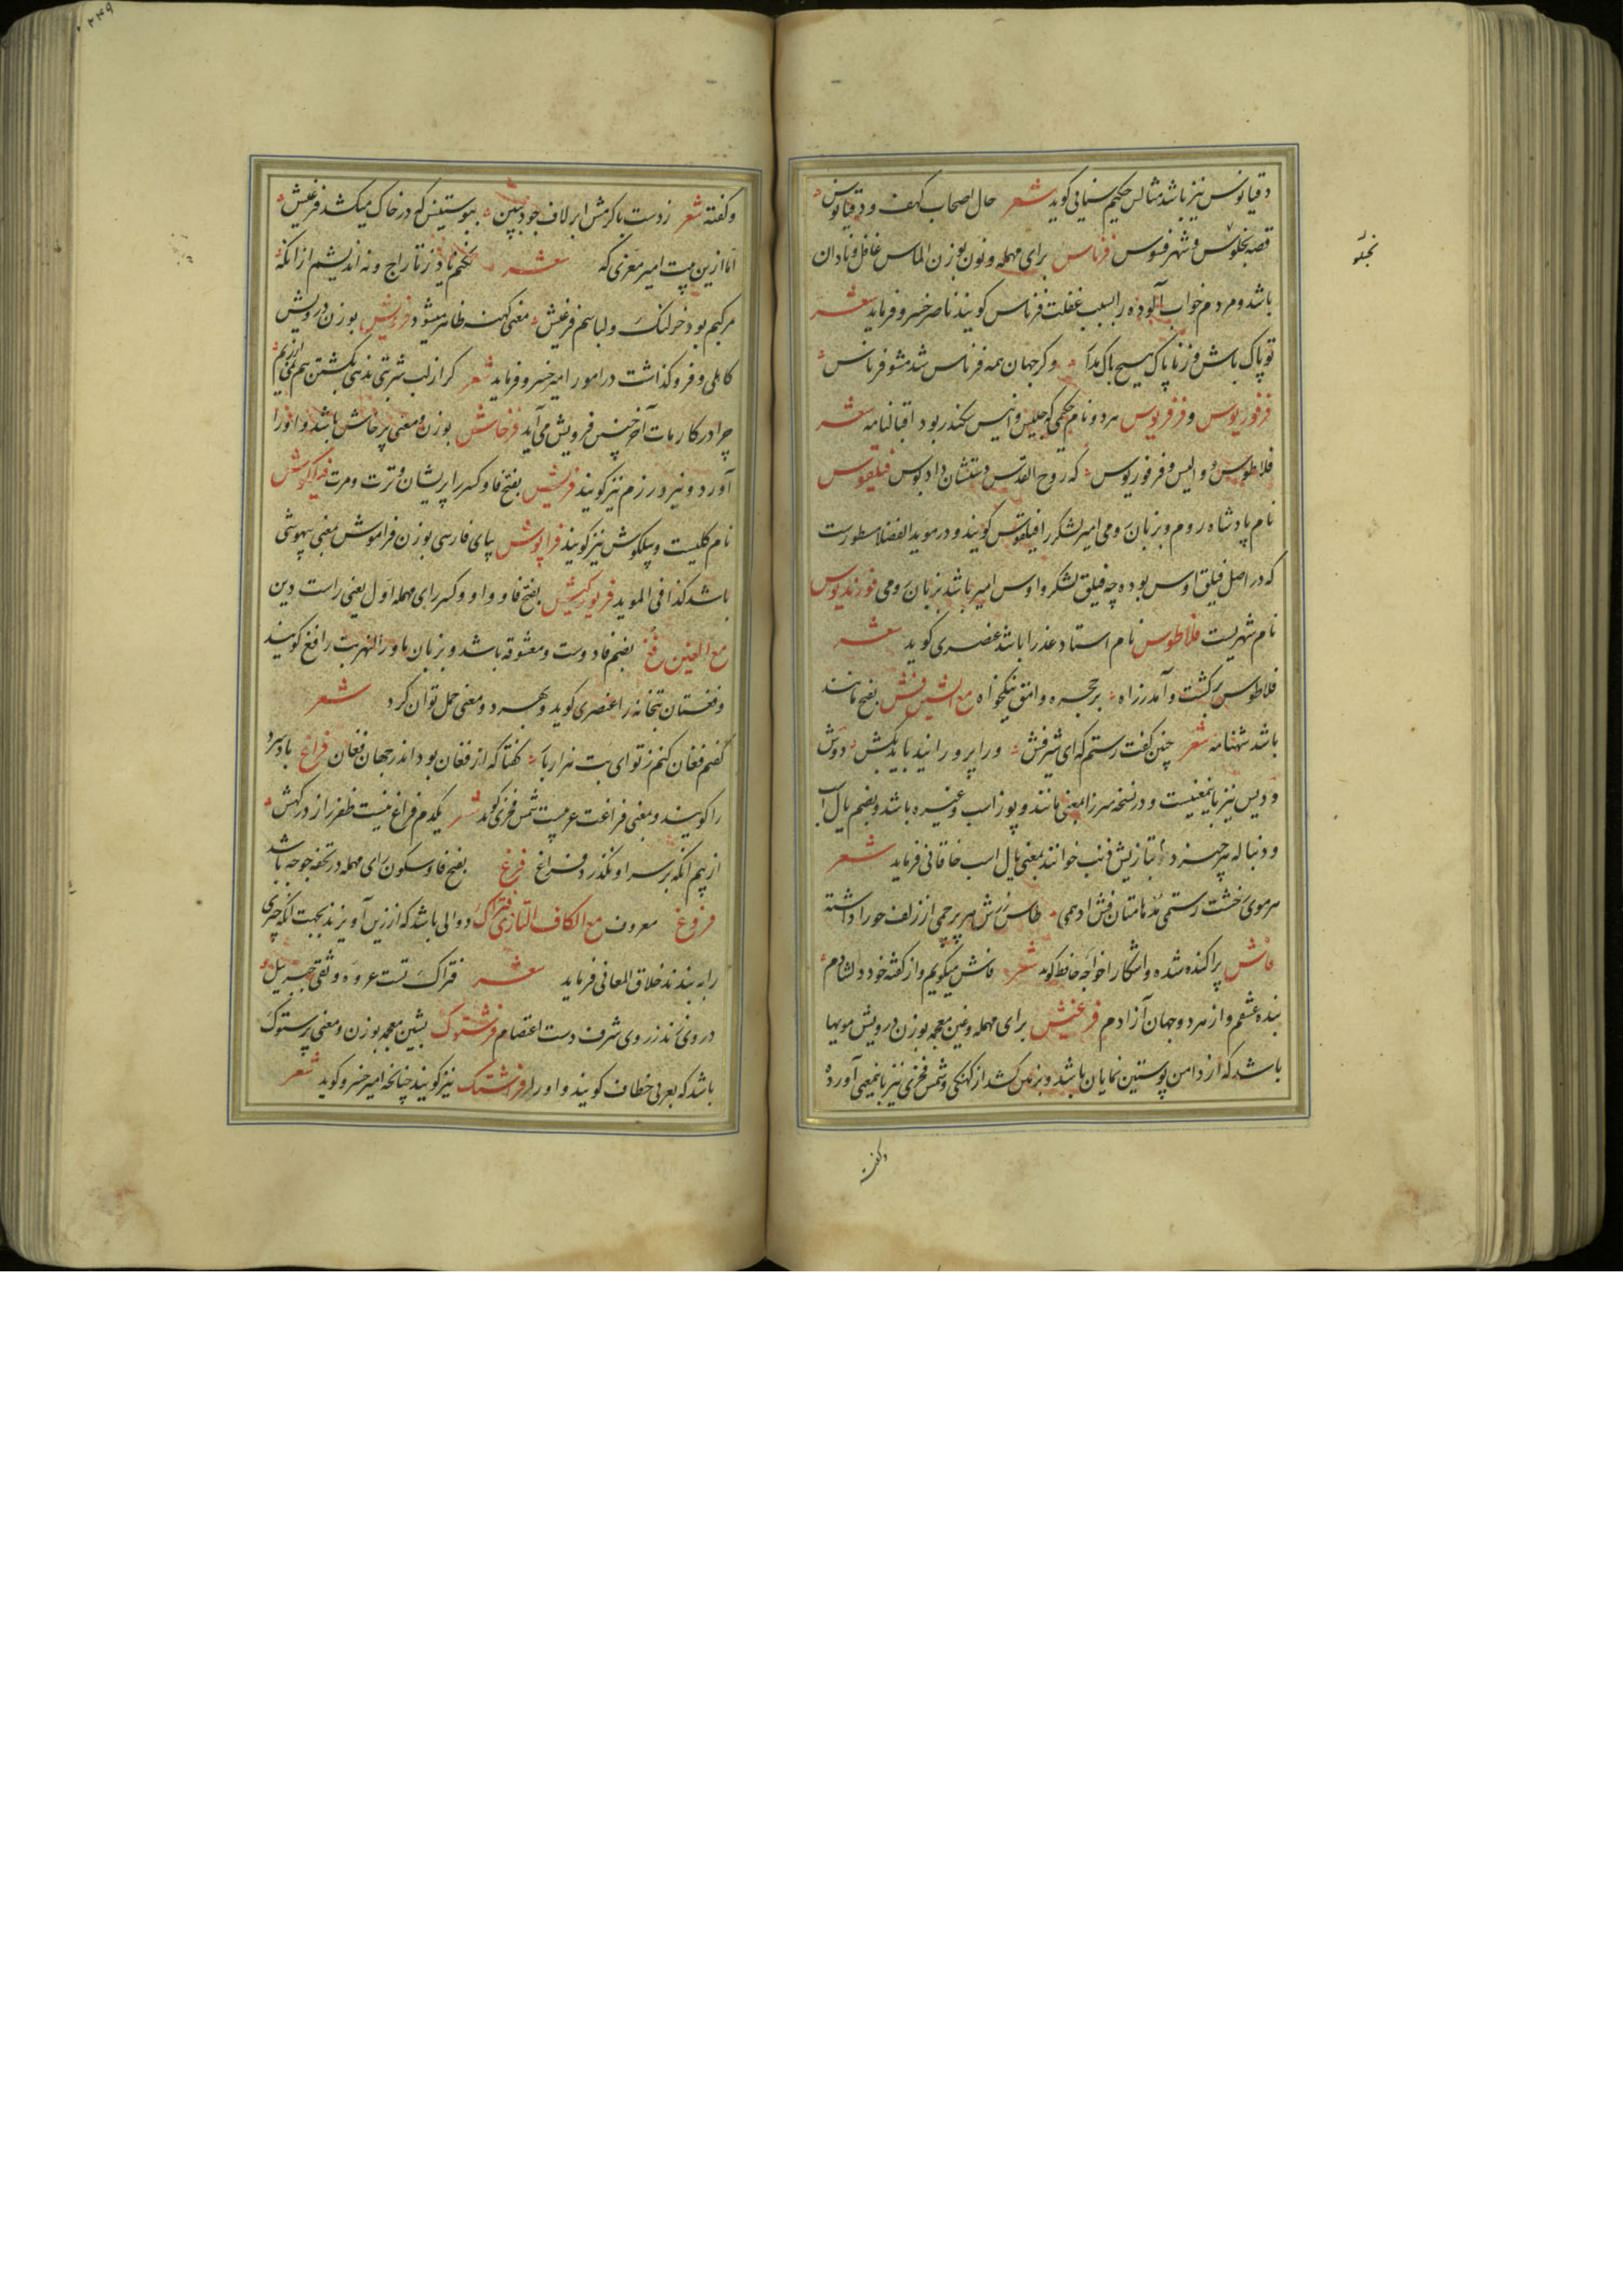 دقیانوس نیز باشد مثالش حکیم سنایی کوید شعر حال اصحاب کهف و دقیانوس
قصه بخلوس و شهر فسوس فرناس برای مهمله و نون بوزن الماس غافل و نادان
باشد و مردم خواب آلوده را بسبب غفلت فرناس کویند ناصر خسرو فرماید شعر
تو پاک باش و ز ناپاک هیچ باک مدار و کر جهان همه فرناس شد مشو فرناس
فرفوریوس و فرفریوس هر دو نام حکیمی که جلیس و انیس سکندر بود اقبالنامه شعر
فلاطوس و والیس و فرفوریوس که روح القدس دستشان داد بوس فیلقوس
نام پادشاه روم و بزبان رومی امیر لشکر را فیلقوس کویند و در موید الفضلا مسطورست
که در اصل فیلق اوس بوده چه فیلق لشکر و اوس امیر باشد بزبان رومی
نام شهریست فلاطوس نام استاد عذرا باشد عنصری کوید شعر
فلاطوس برکشت و آمد ز راه بر حجره وامق نیکخواه مع الشین فش بفتح مانند
باشد شهنامه شعر چنین کفت رستم که ای شیرفش ورا پرورانید باید بکش دوش
و دیس نیز باینمعنیست و در نسخه میرزا بمعنی مانند و پوز اسب و غیره باشد و بضم یال اسب
و دنباله هر چیز و بتازیش ذنب خوانند بمعنی یال اسب خاقانی فرماید شعر
هر موی رخشت رستمی مدهامتان فش ادهمی طاس زرش هر پرچمی از زلف حورا داشته
فاش پراکنده شده و آشکارا خواجه حافظ کوید شعر فاش میکویم و از کفته خود دلشادم
بنده عشقم و از هر دو جهان آزادم فرغیش برای مهمله و غین معجمه بوزن درویش مویها
باشد که از دامن پوستین نمایان باشد و بر زمین کشد از کهنکی و شمس فخری نیز باینمعنی آورده
وکفته
وکفته شعر ز دست باکرمش ابر لاف جود مبین بپوستینش که در خاک میکشد فرغیش
اما ازین بیت امیر معزی که شعر نکنم یاد ز تاراج و نه اندیشم از انکه
مرکبم بود خر لنک و لباسم فرغیش معنی کهنه ظاهر میشود فرویش بوزن درویش
کاهلی و فروکذاشت در امور امیر خسرو فرماید شعر کر از لب شربتی ندهی بکشتن هم نمی ارزیم
چرا در کار مات آخر چنین فرویش می آید فرخاش بوزن و معنی پرخاش باشد و آنرا
آورد و نبرد و رزم نیز کویند فریش بفتح فا و کسر را پریشان و ترت و مرت فیلکوش
نام کلیست و پیلکوش نیز کویند فراپوش ببای فارسی بوزن فراموش بمعنی بیهوشی
باشد کذا فی الموید فریورکیش بفتح فا و واو و کسر رای مهمله اول یعنی راست دین
مع الغین فغ بضم فا دوست و معشوقه باشد و بزبان ماوراالنهر بت را فغ کویند
و فغستان بتخانه را عنصری کوید و بهر دو معنی حمل توان کرد شعر
کفتم فغان کنم ز تو ای بت هزار بار کفتا که از فغان بود اندر جهان فغان فراغ باد سرد
را کویند و بمعنی فراغت عربیست شمس فخری کوید شعر یکدم فراغ نیست ظفر را ز درکهش
از بیم انکه بر سر او نکذرد فراغ فرغ بفتح فا و سکون رای مهمله در تحفه جوجه باشد
فروغ معروف مع الکاف التازی فتراک دوالی باشد که از زین آویزند بجهت انکه چیزی
را به بندند خلاق المعانی فرماید شعر فتراک تست عروه وثقی جبرئیل
در وی زند ز روی شرف دست اعتصام فرشتوک بشین معجمه بوزن و معنی پرستوک
باشد که بعربی خطاف کویند و او را فرشتک نیز کویند چنانکه امیر خسرو کوید شعر